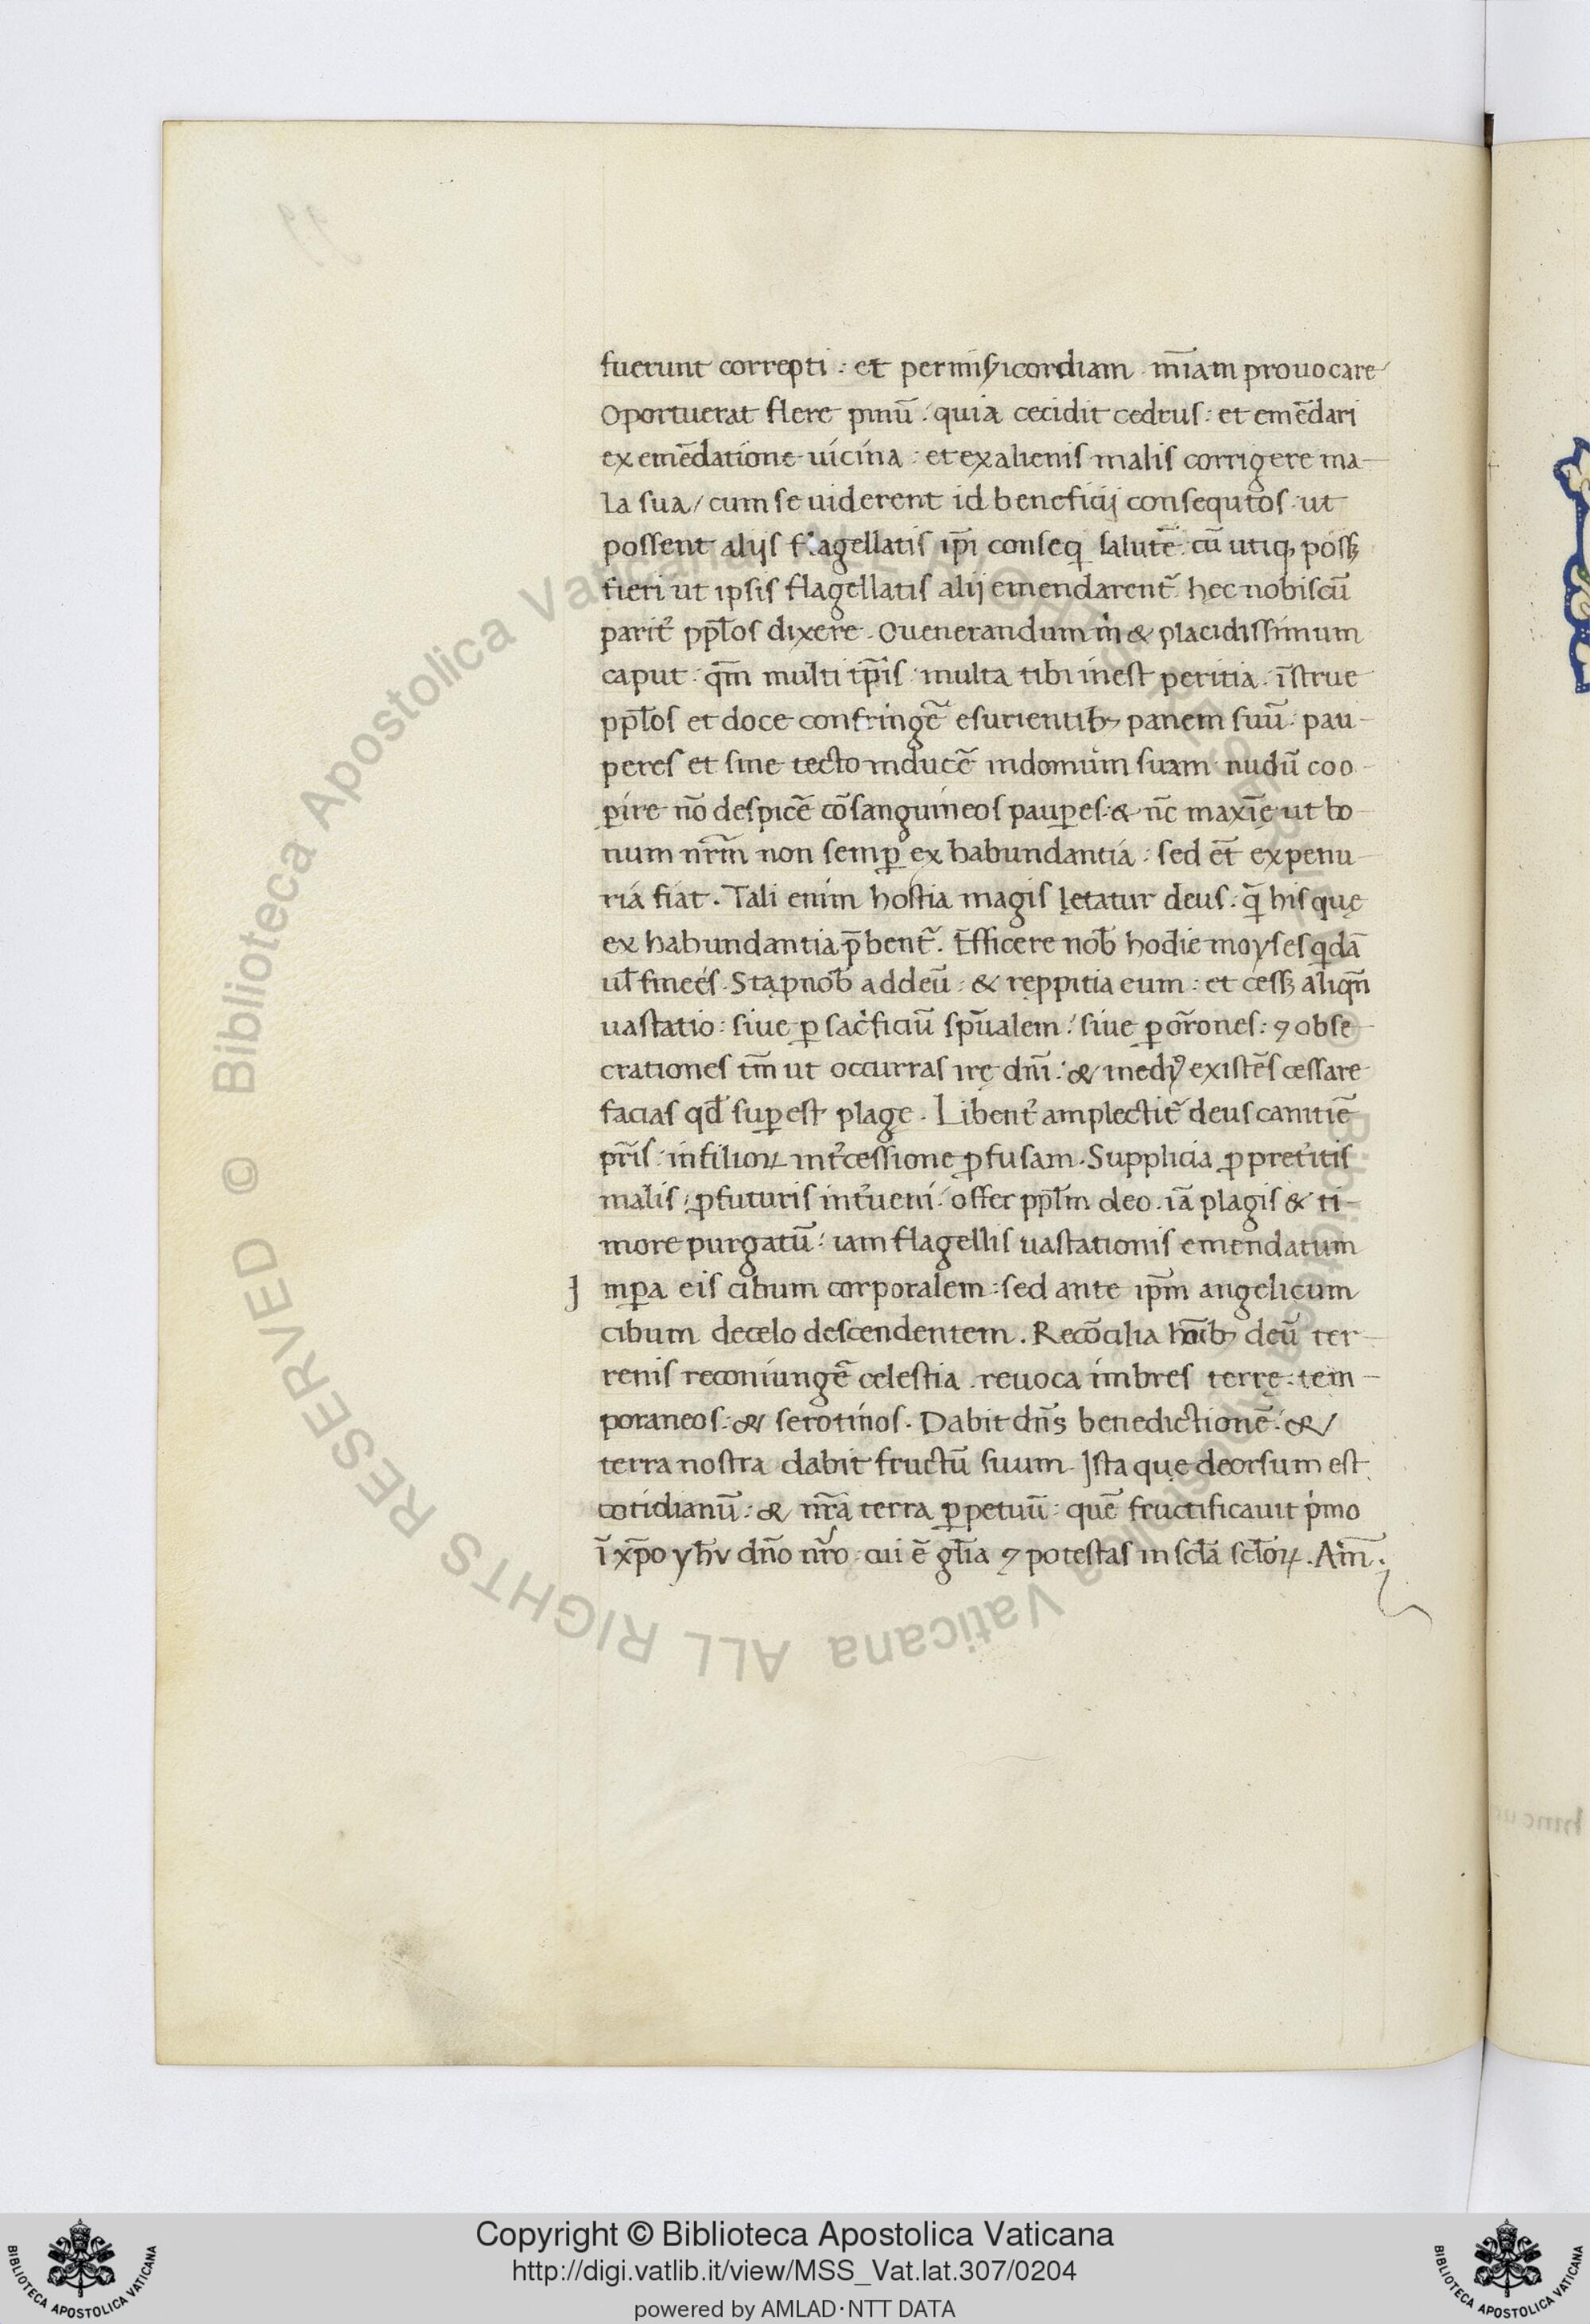 fuerunt correpti : et per misericordiam m̅iam prouocare
Oportuerat flere pinu̅ : quia cecidit cedrus : et eme̅dari
ex eme̅datione uicina : et ex alienis malis corrigere ma-
la sua / cum se uiderent id beneficij consequtos · ut
possent alijs flagellatis ip̅i conseq salute̅ · cu̅ utiqꝫ possꝫ
fieri ut ipsis flagellatis alij emendarent᷑ hęc nobiscu̅
parit᷑ pp̅los dixere . O uenerandum m & placidissimum
caput : qm̅ multi tp̅is : multa tibi inest peritia . i̅strue
pp̅los et doce confringe̅ esurientibꝫ panem suu̅ : pau-
peres et sine tecto induce̅ in domum suam nudu̅ coo-
ꝑire no̅ despice̅ co̅sanguineos pauꝑes : & nc̅ maxi̅e ut bo-
num nr̅m non semꝑ ex habundantia : sed et̅ ex penu-
ria fiat . Tali enim hostia magis lętatur deus . q̅ his quę
ex habundantia p̅bent᷑ . Efficere nob̅ hodie moyses qda̅
ul̅ finees . Sta p nob̅ ad deu̅ : & reppitia eum : et cessꝫ aliqm̅
uastatio : siue ꝑ sac̓ficiu̅ sp̅ualem : siue ꝑ or̅ones : ꝯ obse-
crationes tm̅ ut occurras irę dn̅i : & medyꝰ existe̅s cessare
facias qd̅ suꝑest plagę . Libent᷑ amplectit᷑ deus canitie̅
pr̅is : in filioꝝ int᷑cessione ꝓfusam . Supplicia ꝓ pret᷑itis
malis : ꝓ futuris int᷑ueni : offer pp̅lm deo . ia̅ plagis & ti-
more purgatu̅ : iam flagellis uastationis emendatum
J mꝑa eis cibum corporalem : sed ante ip̅m angelicum
cibum de celo descendentem . Reco̅cilia ho̅ibꝫ deu̅ ter-
renis reconiunge̅ celestia . reuoca imbres terrę : tem-
poraneos : & serotinos . Dabit dn̅s benedictione̅ : & /
terra nostra dabit fructu̅ suum . Ista quę deorsum est
cotidianu̅ : & nr̅a terra ꝑpetuu̅ : que̅ fructificauit p̓mo
i̅ xp̅o yh̅v dn̅o nr̅o : cui e̅ gl̅ia ꝯ potestas in scl̅a scl̅oꝝ . Am̅ .
ALL RIGHTS RESERVED © Biblioteca Apostolica Vaticana
Copyright © Biblioteca Apostolica Vaticana
http://digi.vatlib.it/view/MSS_Vat.lat.307/0204
powered by AMLAD·NTT DATA
BIBLIOTECA APOSTOLICA VATICANA
BIBLIOTECA APOSTOLICA VATICANA